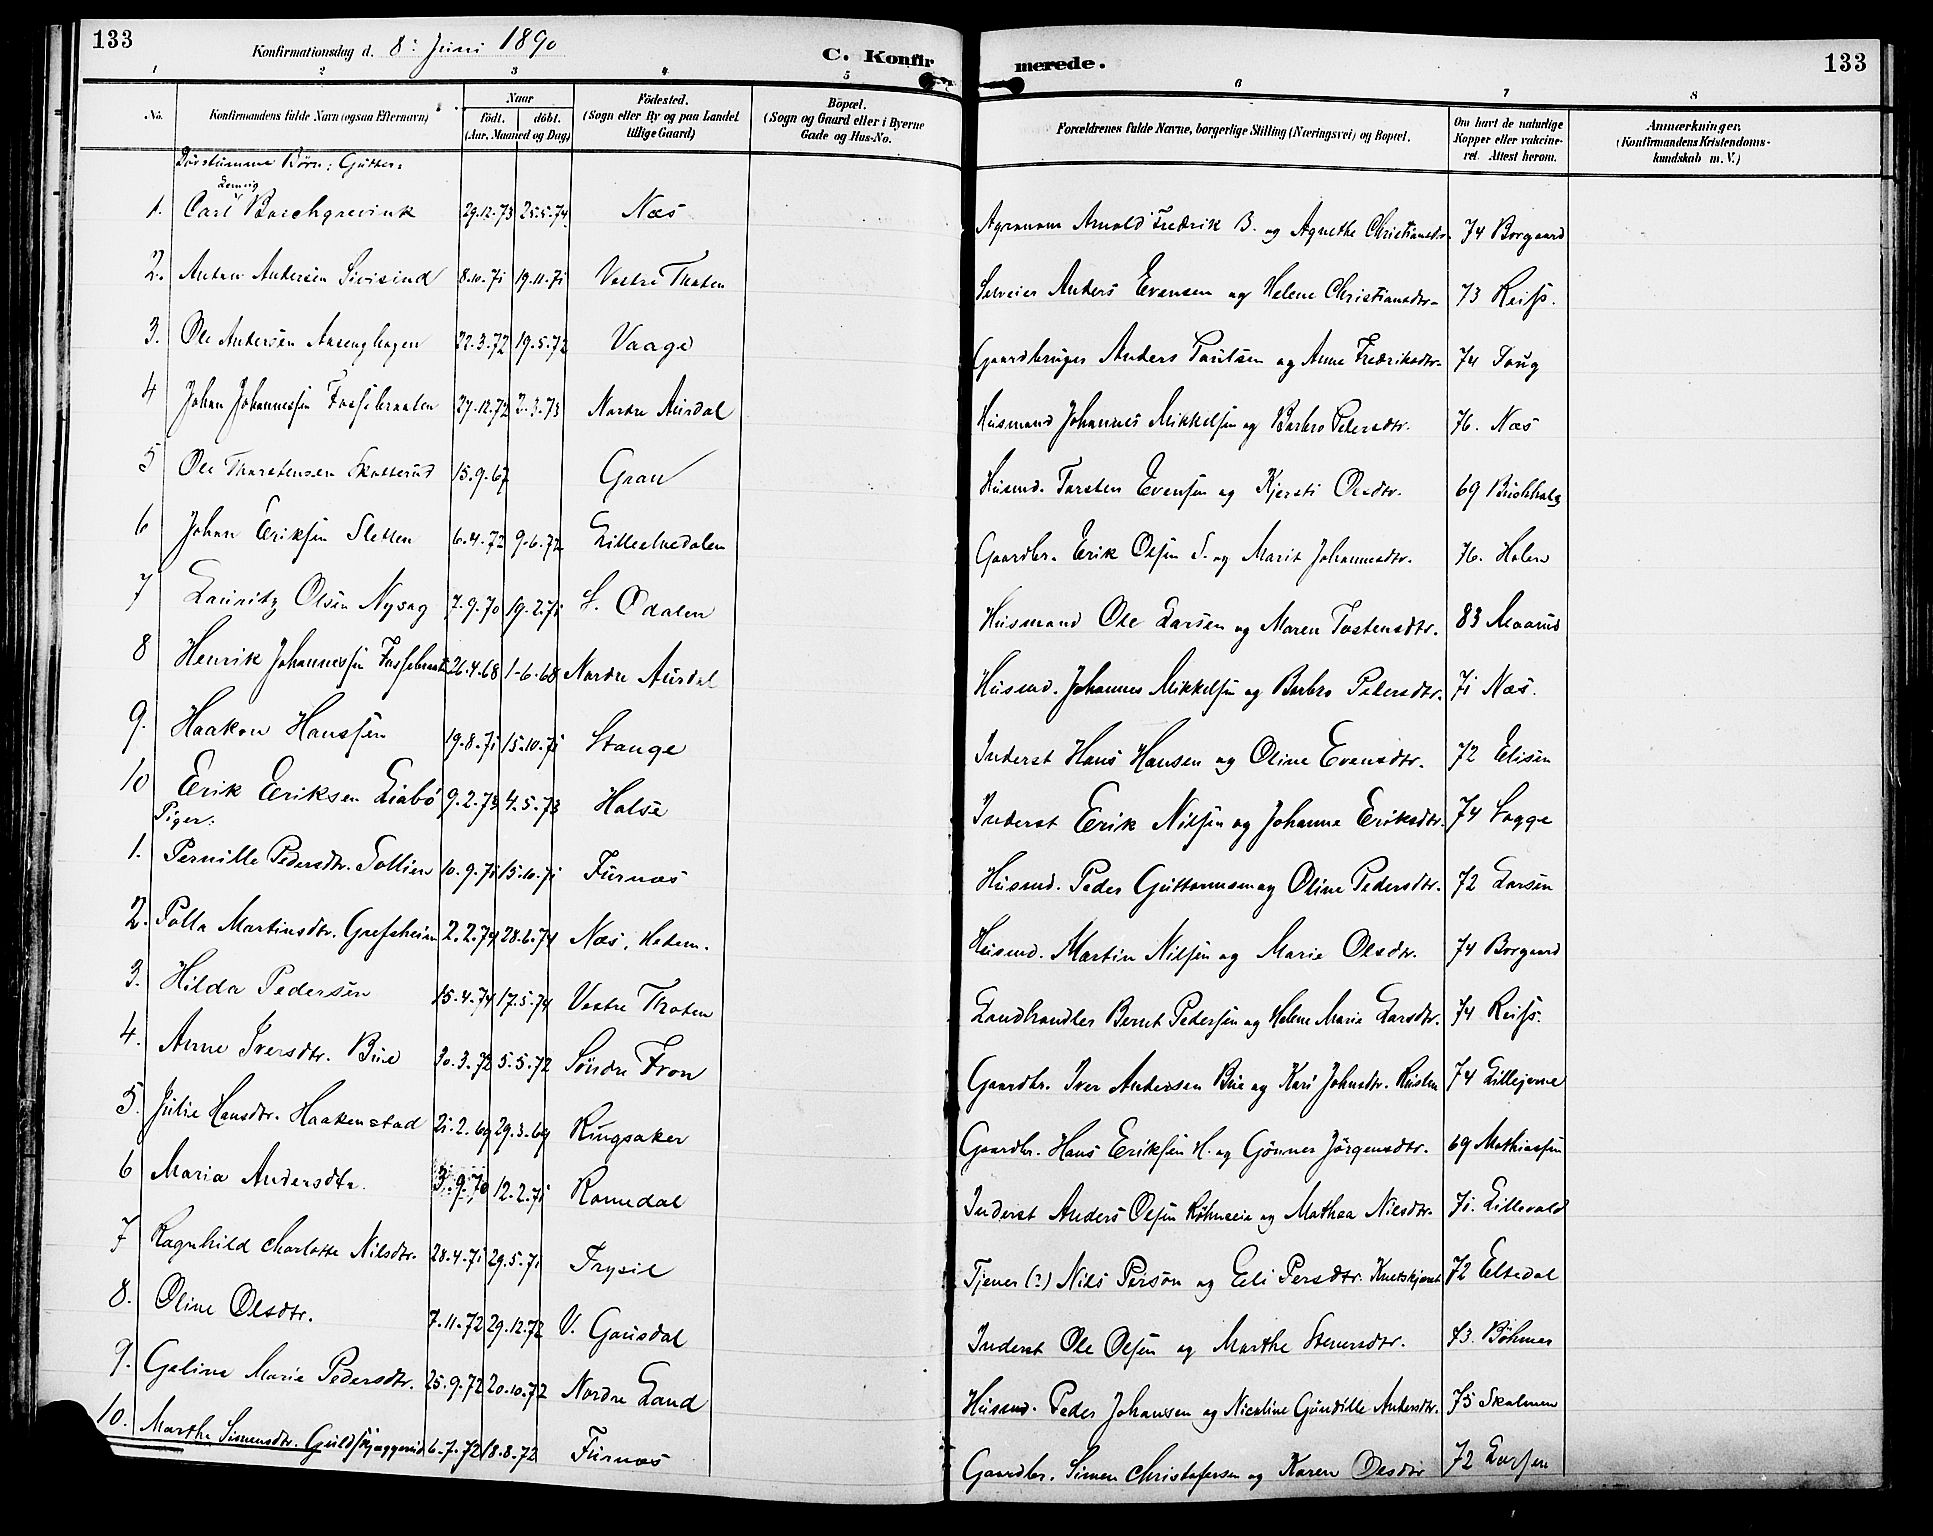 133
Konfirmationsdag d. 8: Juni 1890
C. Konfirmerede.
133
1 2 3 4 5 6 7 8
No. Konfirmandens fulde Navn (ogsaa Efternavn) Naar Födt. döbt. (Aar, Maaned og Dag) Födested. (Sogn eller By og paa Landet tillige Gaard) Bopæl. (Sogn og Gaard eller i Byerne Gade og Hus-No. Forældrenes fulde Navne, borgerlige Stilling (Næringsvei) og Bopæl. Om havt de naturlige Kopper eller vakcineret. Attest herom. Anmærkninger. (Konfirmandens Kristendomskundskab m. V.)
Dövstumme Börn: Gutter:
1. Carl Ludvig Borchgrevink 29.12.73 25.5.74 Næs Agronom Arnold Fredrik B. og Agnethe Christiansdtr. 74 Borgaard
2. Anton Andersen Sivisind 8.10.71 19.11.71 Vestre Thoten Selveier Anders Evensen og Helene Christiansdtr. 73 Reiss.
3. Ole Andersen Aasenghagen 22.3.72 19.5.72 Vaage Gaardbruger Anders Paulsen og Anne Fredriksdtr. 74 Koug
4 Johan Johannessen Fossebraaten 27.12.72 2.3.73 Nordre Aurdal Husmand Johannes Mikkelsen og Barbro Petersdtr. 76. Næs
5 Ole Thorstensen Skatterud 15.9.67 Gran Husmd. Torsten Evensen og Kjersti Olsdtr. 69 Buchholz
6 Johan Eriksen Sletten 6.4.72 9.6.72 Lilleelvedalen Gaardbr. Erik Olsen S. og Marit Johannesdtr. 76. Holm
7 Lauritz Olsen Nysag 7.9.70 19.2.71 S. Odalen Husmand Ole Larsen og Maren Tostensdtr. 83 Maarud
8 Henrik Johannessen Fossebraaten 26.4.68 1-6.68 Nordre Aurdal Husmd. Johannes Mikkelsen og Barbro Petersdtr. 71 Næs.
9. Haakon Hanssen 19.8.71 15.10.71 Stange Inderst Hans Hansen og Oline Evensdtr. 72 Elisen
10 Erik Eriksen Liabö 9.2.73 4.5.73 Halse Inderst Erik Nilsen og Johanne Eriksdtr. 74 Sagge
Piger:
1. Pernille Pedersdtr. Sollien 10.9.71 15.10.71 Furnæs Husmd. Peder Guttormsen og Oline Pedersdtr. 72 Larsen
2. Polla Martinsdtr. Grefsheim 2.2.74 28.6.74 Næs, Hedem. Husmd. Martin Nilsen og Marie Olsdtr. 74 Borgaard
3. Hilda Pedersen 15.4.74 17.5.74 Vestre Thoten Landhandler Bernt Pedersen og Helene Marie Larsdtr. 74 Reiss.
4. Anne Iversdtr. Bue 30.3.72 5.5.72 Söndre Fron Gaardbr. Iver Andersen Bue og Kari Johnsdtr. Husten 74 Lillejerne
5. Julie Hansdtr. Haakenstad 21.2.69 29.3.69 Ringsaker Gaardbr. Hans Eriksen H. og Gönner Jörgensdtr. 69 Mathiassen
6 Maria Andersdtr. 3.9.70 12.2.71 Romedal Inderst Anders Olsen og Mathea Nilsdtr. 71. Lillevold
7 Ragnhild Charlotte Nilsdtr. 28.4.71 29.5.71 Trysil Tjener (?) Nils Person og Eli Persdtr. 72 Eltedal
8. Oline Olsdtr. 7.11.72 29.12.72 V. Gausdal Inderst Ole Olsen og Marthe Stenersdtr. 73. Böhmer
9. Galina Marie Pedersdtr. 25.9.72 20.10.72 Nordre Land Husmd. Peder Johansen og Nicoline Gundille Andersdtr. 75 Skolmen
10. Marthe Simensdtr. Guldskjæggerud 6.7.72 18.8.72 Furnæs Gaardbr. Simen Christofersen og Karen Olsdtr 72 Larsen